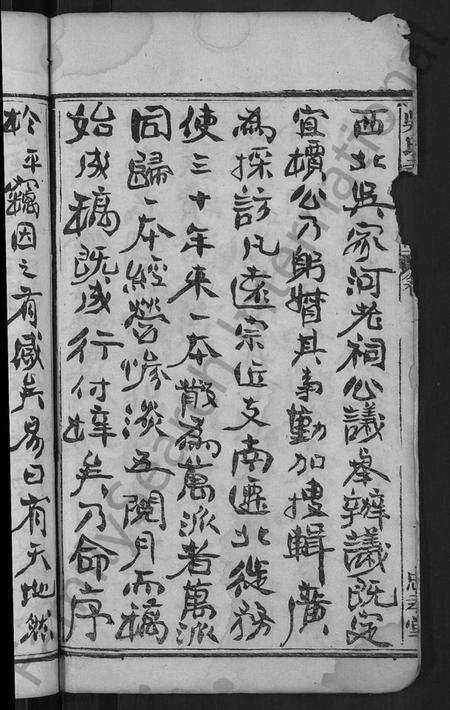 西北吳家河老祠公議舉辦議既定
宜櫝公乃躬攢其事勤加搜輯廣
為採訪凡遠宗近支南遷北徙務
使三十年來一本散為萬派者萬派
同歸一本經營慘淡五閱月而稿
始成稿既成行付梓矣乃命序
於平竊因之有感矣易曰有天地然